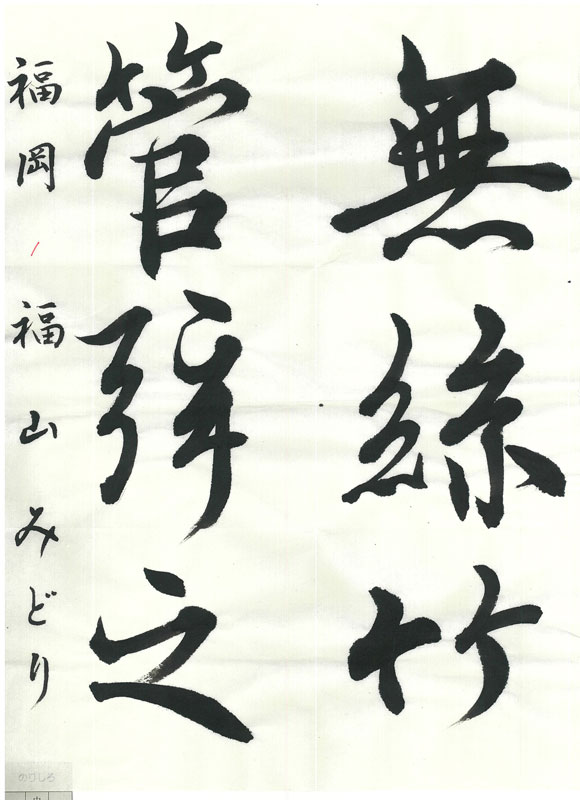 無絲竹
管弦之
福岡 福山みどり
のりしろ